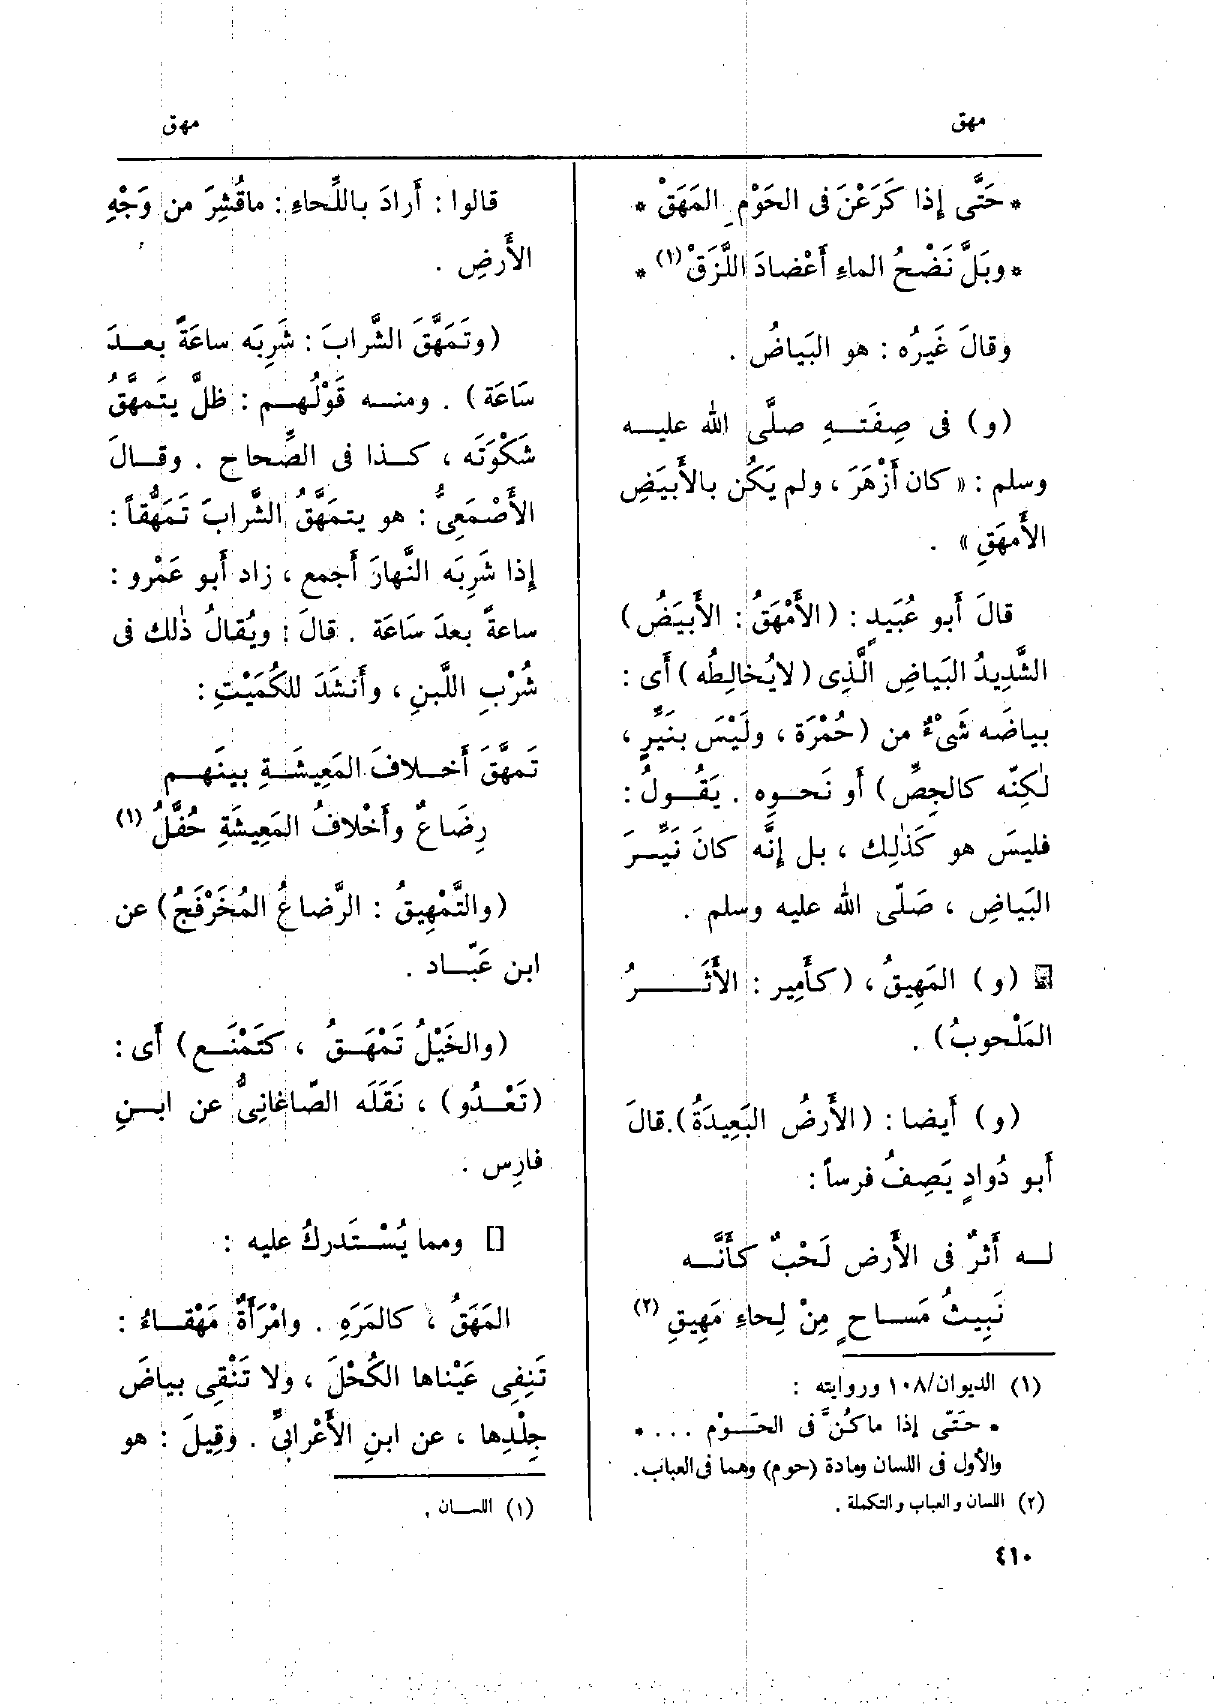 مهق
مهق
* حَتَّى إِذا كَرَعْنَ فى الحَوْمِ المَهَقْ *
* وبَلَّ نَضْحُ الماءِ أَعْضادَ اللَّزَقْ (١) *
وقالَ غَيرُه : هو البَياضُ .
(و) فى صِفَتـــهِ صلَّى الله عليـــه
وسلم : « كان أَزْهَرَ ، ولم يَكُن بالأَبيَضِ
الأَمهَقِ » .
قالَ أَبو عُبَيدٍ : (الأَمْهَقُ : الأَبيَضُ)
الشَّدِيدُ البَياضِ الَّذِى (لايُخالِطُه) أَى :
بياضَه شَىْءٌ من (حُمْرَة ، ولَيْسَ بنَيِّرٍ ،
لٰكِنّه كالجِصِّ) أَو نَحـــوِه . يَقُـــولُ :
فليسَ هو كَذٰلِك ، بل إِنَّه كانَ نَيِّـــرَ
البَياضِ ، صَلّى الله عليه وسلم .
(و) المَهِيقُ ، (كأَمِير : الأَثَـــــرُ
المَلْحوبُ) .
(و) أَيضا : (الأَرضُ البَعِيدَةُ).قالَ
أَبو دُوادٍ يَصِفُ فرساً :
لـــه أَثرٌ فى الأَرض لَحْبٌ كأَنَّـــه
نَبِيثُ مَســـاحٍ مِنْ لِحاءِ مَهِيقِ (٢)
(١) الديوان/١٠٨ وروايته :
* حَتّى إذا ماكُنَّ فى الحَـــوْم ... *
والأول فى اللسان ومادة (حوم) وهما فى العباب.
(٢) اللسان والعباب والتكملة .
قالوا : أَرادَ باللِّحاءِ : ماقُشِرَ من وَجْهِ
الأَرضِ .
(وتَمَهَّقَ الشَّرابَ : شَرِبَه ساعَةً بعـــدَ
سَاعَة) . ومنـــه قَوْلُهـــم : ظلَّ يتَمهَّقُ
شَكْوَتَه ، كـــذا فى الصِّحاح . وقـــالَ
الأَصْمَعِىُّ : هو يتمهَّقُ الشَّرابَ تَمَهُّقاً :
إِذا شَرِبَه النَّهارَ أَجمع ، زاد أَبو عَمْرو :
ساعةً بعدَ سَاعَة . قالَ : ويُقالُ ذٰلك فى
شُرْبِ اللَّبنِ ، وأَنشَدَ للكُمَيْتِ :
تَمهَّقَ أَخـــلافَ المَعِيشَـــةِ بينَهـــم
رِضَاعٌ وأَخْلافُ المَعِيشَةِ حُفَّلُ (١)
(والتَّمْهِيقُ : الرَّضاعُ المُخَرْفَجُ) عن
ابن عَبّـــاد .
(والخَيْلُ تَمْهَـــقُ ، كتَمْنَـــع) أَى :
(تَعْـــدُو) ، نَقَلَه الصّاغانِىُّ عن ابـــنِ
فارِس .
[] ومما يُسْـــتَدركُ عليه :
المَهَقُ ، كالمَرَهِ . وامْرَأَةٌ مَهْقـــاءُ :
تَنفِى عَيْناها الكُحْلَ ، ولا تَنْقِى بياضَ
جِلْدِها ، عن ابنِ الأَعْرابىِّ . وقِيلَ : هو
(١) اللســـان .
٤١٠